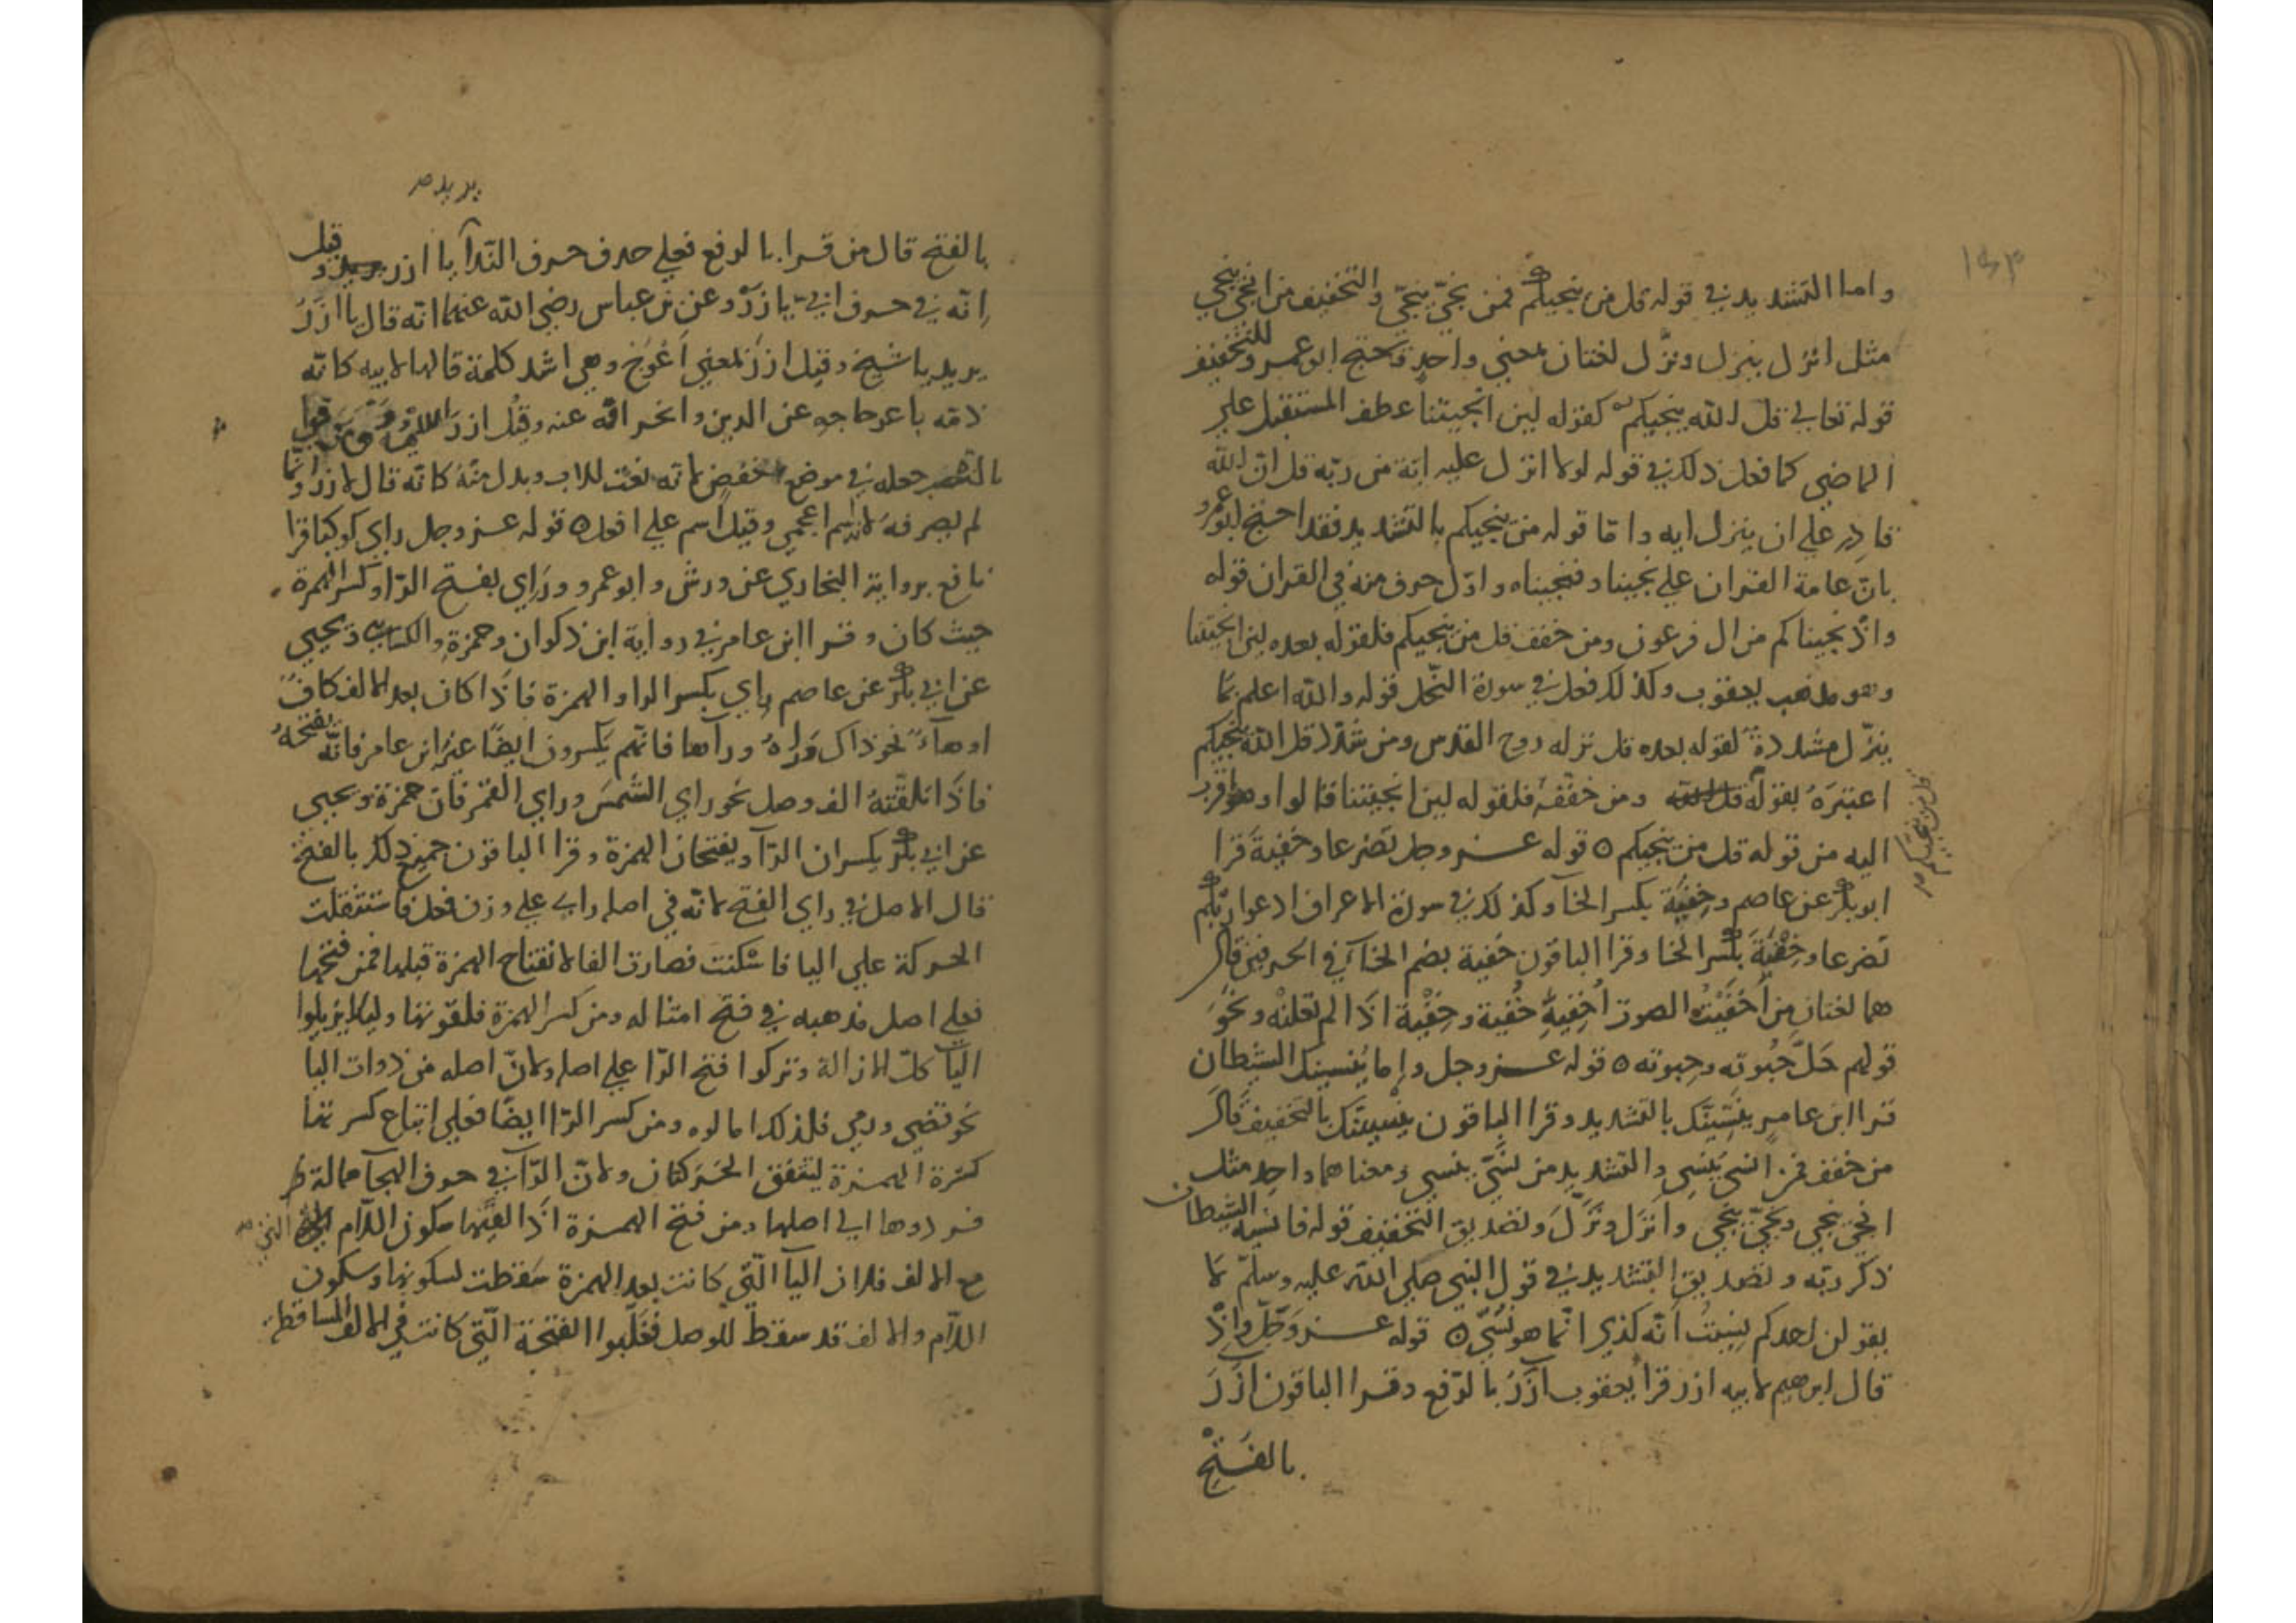 واما التشديد في قوله قل من ينجيكم فمن نجّي ينجّي والتخفيف من انجي ينجي
مثل انزل ينزل ونزّل لغتان بمعني واحد وتحتج ابو عمرو للتخفيف
قوله تعالي قل الله ينجيكم كقوله لين انجيتنا عطف المستقبل علي
الماضي كما فعل ذلك في قوله لولا انزل عليه اية من ربّه قل ان الله
قادر علي ان ينزل ايه واما قوله من ينجيكم بالتشديد فقد احتج ابو عمرو
بانّ عامة القران علي نجينا ونجيناه واوّل حرف منه في القران قوله
واذ نجيناكم من ال فرعون ومن خفف قل من ينجيكم فلقوله بعده لين انجيتنا
وهو مذهب يعقوب وكذلك فعل في سورة النّحل قوله والله اعلم بما
ينزّل مشددة لقوله بعده قل نزله روح القدس ومن شدّد قل الله ينجيكم
اعتبره بقوله قل من ينجيكم ومن خفّفه فلقوله لين انجيتنا قالوا وهو اقرب
اليه من قوله قل من ينجيكم ٥ قوله عز وجل تضرعا وخفية قرا
ابو بكر عن عاصم وخِفية بكسر الخآ وكذلك في سورة الاعراف ادعوا ربّكم
تضرعا وخِفية بكسر الخا وقرا الباقون خُفية بضم الخآ في الحرفين قال
هما لغتان من اَخفيت الصوت اُخفيه خُفية وخِفية اذا لم تعلنه ونحو
قولهم حَلّ حُبوته وحِبوته ٥ قوله عز وجل واِما يُنسينك الشيطان
قرا ابن عامر ينسّينّك بالتشديد وقرا الباقون ينسينّك بالتخفيف قال
من خفف فمن انسي يُنسِي والتشديد من نسّي ينسي ومعناهما واحد مثل
انجي ينجي ونجيّ ينجي وانزل ونزّل وتصديق التخفيف قوله فانسيه الشيطان
ذكر ربّه وتصديق التشديد في قول النبي صلي الله عليه وسلّم لا
يقولن احدكم نسيتُ اية كذي انّما هو نُسّي ٥ قوله عز وجلّ واذ
قال ابرهيم لابيه ازر قرا يعقوب آزرُ بالرّفع وقرا الباقون ازرَ
بالفتح
يريد
بالفتح قال من قرا بالرفع فعلي حذف حرف النّدآ يا ازر وقيل
انّه في حرف ابيّ يا ازرُ وعن بن عباس رضي الله عنهما انّه قال يا ازرُ
يريد يا شيخ وقيل ازرُ بمعني اعوج وهي اشد كلمة قالها لابيه كانّه
ذمّه باعوجاجه عن الدين وانحرافه عنه وقيل ازر ومن قرا
بالنصب جعله في موضع خفض لانّه نعت للاب وبدل منه كانّه قال لازر وانّما
لم يصرفه لانه اسم اعجمي وقيل اسم علي افعل ٥ قوله عز وجل راي كوكبا قرا
نافع برواية البخاري عن ورش وابو عمرو وراي بفتح الرّا وكسر الهمزة
حيث كان وقرا ابن عامر في رواية ابن ذكوان وحمزة والكسائي ويحيي
عن ابي بكر عن عاصم رِاي بكسر الرا والهمزة فاذا كان بعد الالف كاف
او هآء نحو ذاك ورآه ورآها فانّهم يكسرون ايضًا غير ابن عامر فانّه يفتحه
فاذا تلقته الف وصل نحو راي الشمس وراي القمر فان حمزة ويحيي
عن ابي بكر يكسران الرّآ ويفتحان الهمزة وقرا الباقون جميع ذلك بالفتح
قال الاصل في راي الفتح لانّه في اصله راي علي وزن فعل فاستثقلت
الحركة علي اليا فاسكنت فصارت الفا لانفتاح الهمزة قبلها فمن فتحها
فعلي اصل مذهبه في فتح امثاله ومن كسر الهمزة فلقوتها وليلا يزيلوا
اليآ كلّ الازالة وتركوا فتح الرّا علي اصله ولانّ اصله من ذوات اليا
نحو تقضي ورمي فلذلك امالوه ومن كسر الرّا ايضًا فعلي اتباع كسرتها
كسرة الهمزة ليتفق الحركتان ولانّ الرّآ في حروف الهجآ ممالة
فردوها الي اصلها ومن فتح الهمزة اذا لقيها سكون اللّام التي
مع الالف فلان اليآ الّتي كانت بعد الهمزة سقطت لسكونها وسكون
اللّام والالف قد سقط للوصل فغلّبوا الفتحة الّتي كانت في الالف الساقطة